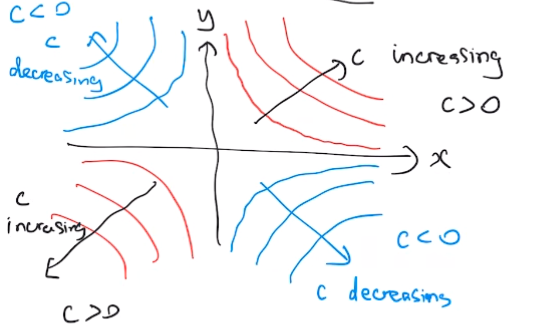 C<0
C
decreasing
y
C increasing
C>0
x
C
increasing
C>0
C<0
C decreasing